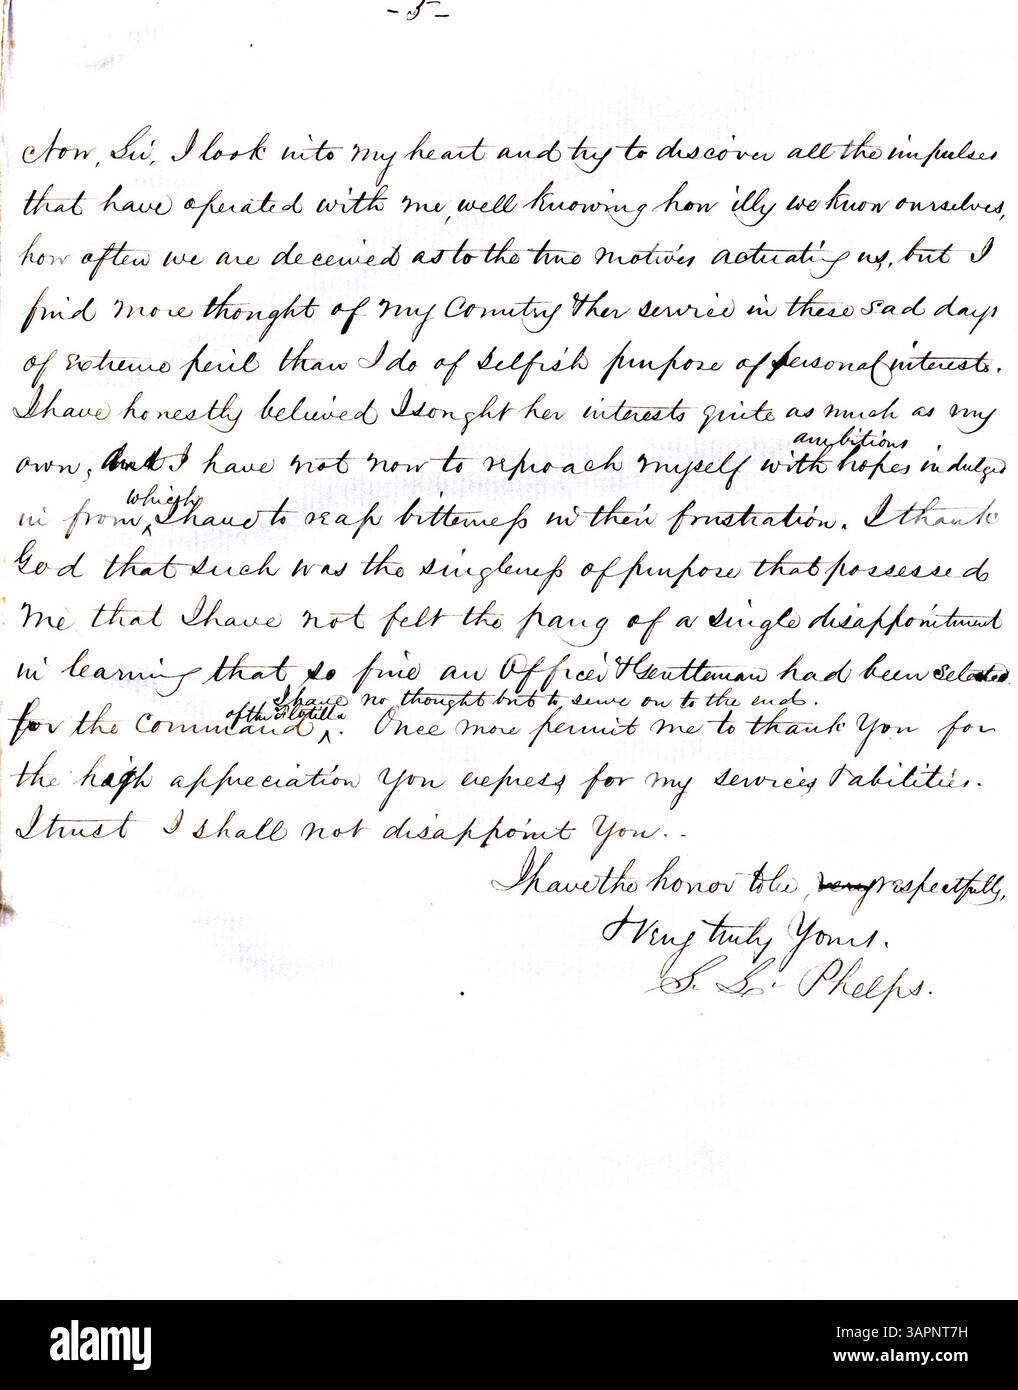 - 5 -
Now, Sir, I look into my heart and try to discover all the impulses
that have operated with me, well knowing how illy we know ourselves,
how often we are deceived as to the true motives actuating us, but I
find more thought of my Country & her service in these sad days
of extreme peril than I do of selfish purpose of personal interests.
I have honestly believed I sought her interests quite as much as my
ambitious
own, but I have not now to reproach myself with hopes indulged
which
in from I have to reap bitterness in their frustration. I thank
God that such was the singleness of purpose that possessed
me that I have not felt the pang of a single disappointment
in learning that so fine an Officer & Gentleman had been selected
I have no thought but to serve on to the end.
of the Flotilla
for the command. Once more permit me to thank You for
the high appreciation You express for my services & abilities.
I trust I shall not disappoint You.
I have the honor to be, very respectfully,
& Very truly Yours.
S. L. Phelps.
alamy
Image ID: 3APNT7H
www.alamy.com